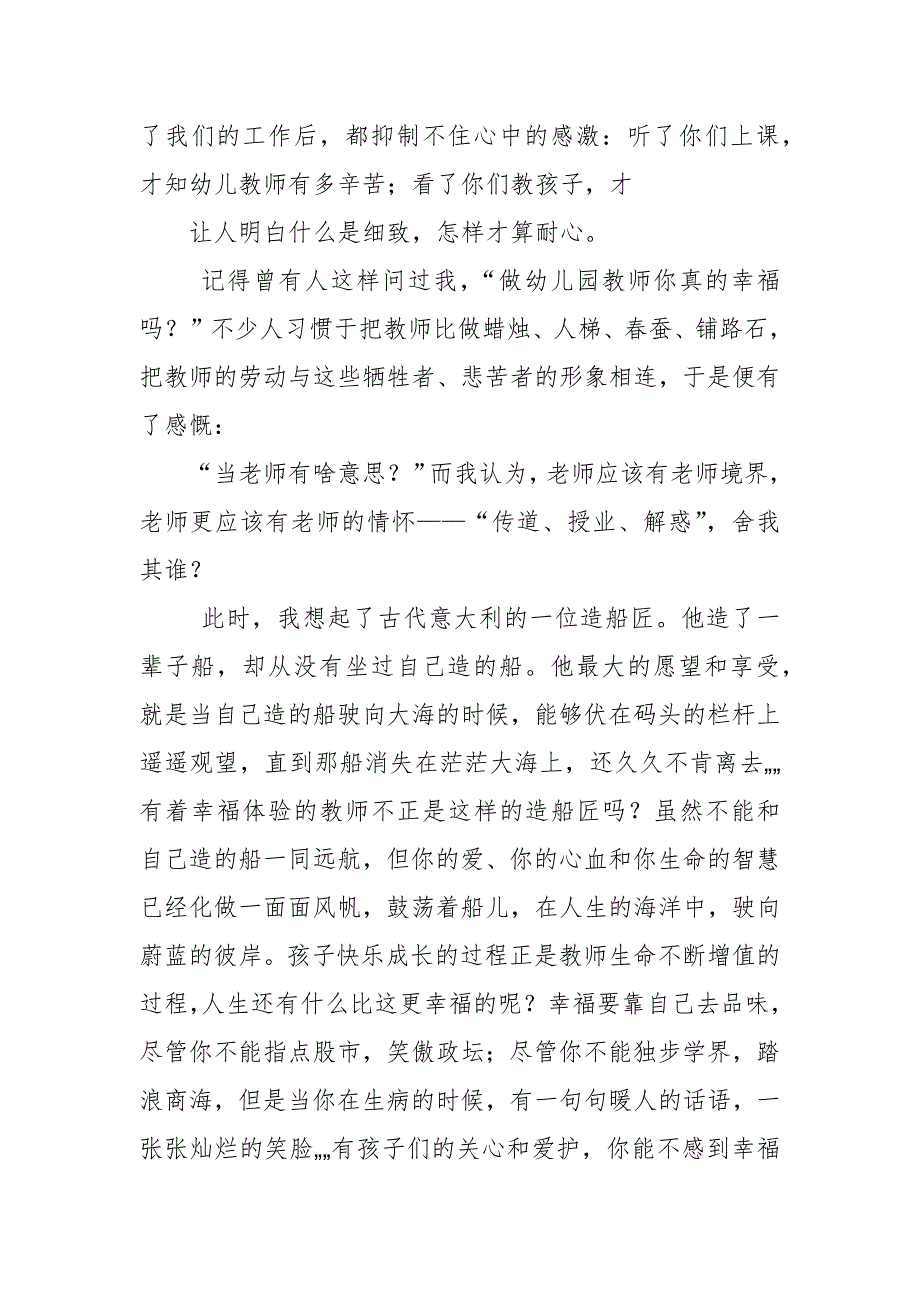 了我们的工作后，都抑制不住心中的感激：听了你们上课，
才知幼儿教师有多辛苦；看了你们教孩子，才
让人明白什么是细致，怎样才算耐心。
记得曾有人这样问过我，“做幼儿园教师你真的幸福
吗？”不少人习惯于把教师比做蜡烛、人梯、春蚕、铺路石，
把教师的劳动与这些牺牲者、悲苦者的形象相连，于是便有
了感慨：
“当老师有啥意思？”而我认为，老师应该有老师境界，
老师更应该有老师的情怀——“传道、授业、解惑”，舍我
其谁？
此时，我想起了古代意大利的一位造船匠。他造了一
辈子船，却从没有坐过自己造的船。他最大的愿望和享受，
就是当自己造的船驶向大海的时候，能够伏在码头的栏杆上
遥遥观望，直到那船消失在茫茫大海上，还久久不肯离去„„
有着幸福体验的教师不正是这样的造船匠吗？虽然不能和
自己造的船一同远航，但你的爱、你的心血和你生命的智慧
已经化做一面面风帆，鼓荡着船儿，在人生的海洋中，驶向
蔚蓝的彼岸。孩子快乐成长的过程正是教师生命不断增值的
过程，人生还有什么比这更幸福的呢？幸福要靠自己去品味，
尽管你不能指点股市，笑傲政坛；尽管你不能独步学界，踏
浪商海，但是当你在生病的时候，有一句句暖人的话语，一
张张灿烂的笑脸„„有孩子们的关心和爱护，你能不感到幸福